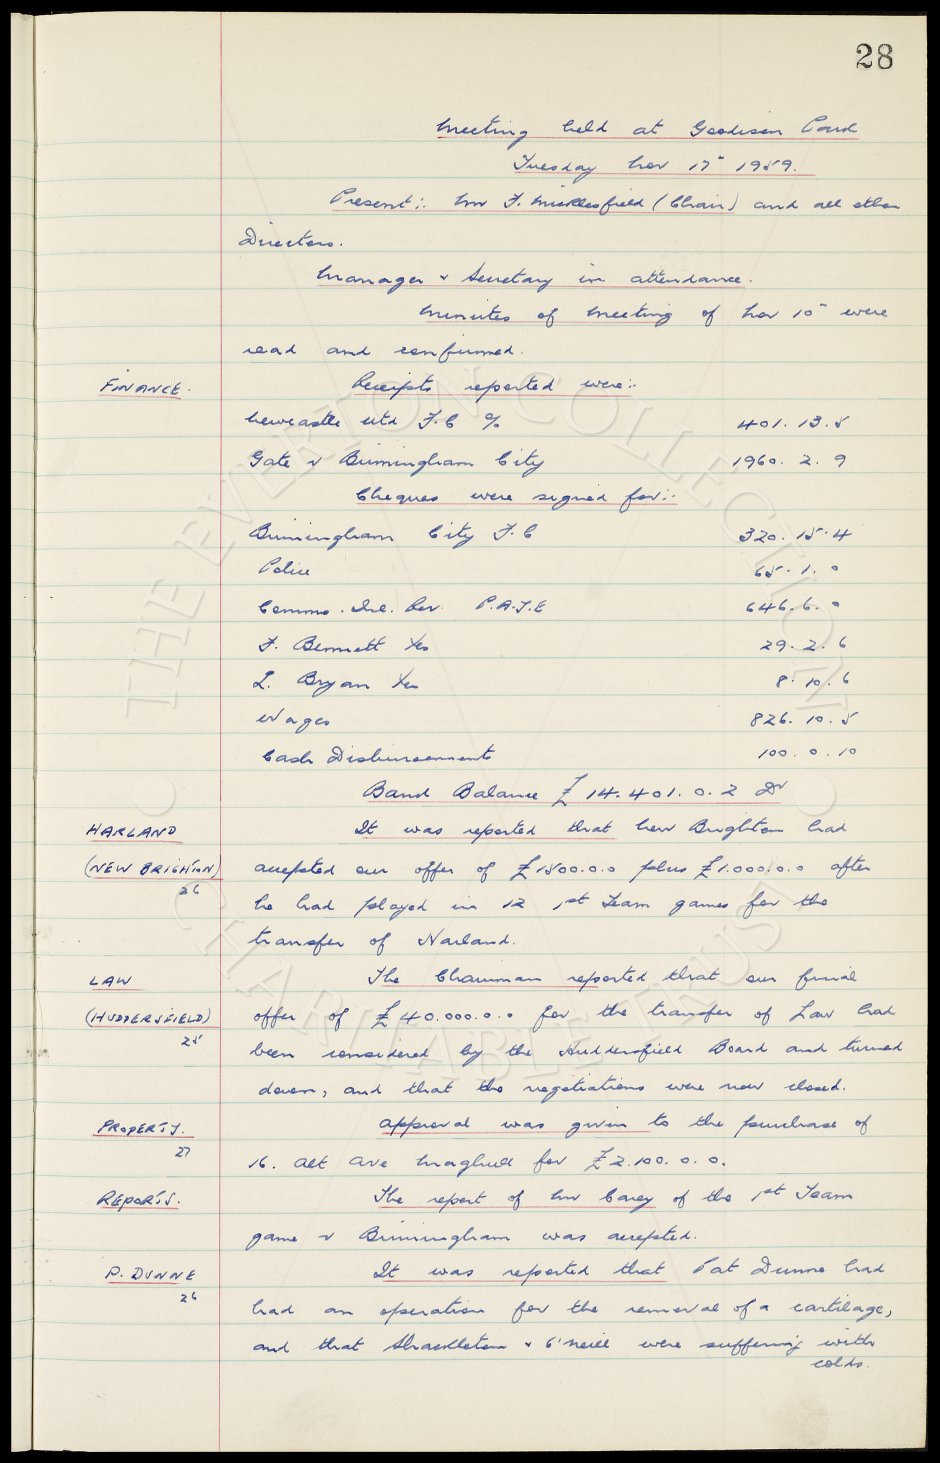 28
Meeting held at Goodison Park
Tuesday Nov 17" 1959.
Present:. Mr F. Micklesfield (Chair) and all other
Directors.
Manager & Secretary in attendance.
Minutes of Meeting of Nov 10" were
read and confirmed.
FINANCE. Receipts reported were:.
Newcastle Utd F.C % 401. 13. 5
Gate v Birmingham City 1960. 2. 9
Cheques were signed for:-
Birmingham City F.C 320. 15. 4
Police 65. 1. 0
Comms. Inl. Rev. P.A.Y.E 646. 6. 0
F. Bennett 29. 2. 6
L. Bryan 8. 10. 6
Wages 826. 10. 5
Cash Disbursements 100. 0. 10
Bank Balance £14.401. 0. 2 Dr
HARLAND It was reported that New Brighton had
(NEW BRIGHTON) accepted our offer of £1500.0.0 plus £1.000.0.0 after
26
he had played in 12 1st Team games for the
transfer of Harland.
LAW The Chairman reported that our final
(HUDDERSFIELD) offer of £40.000.0.0 for the transfer of Law had
25
been considered by the Huddersfield Board and turned
down, and that the negotiations were now closed.
PROPERTY. Approval was given to the purchase of
27
16. Alt Ave Maghull for £2.100. 0. 0.
REPORTS. The report of Mr Carey of the 1st Team
game v Birmingham was accepted.
P. DUNNE It was reported that Pat Dunne had
26
had an operation for the removal of a cartilage,
and that Shackleton & O'Neill were suffering with
colds.
© THE EVERTON COLLECTION
CHARITABLE TRUST